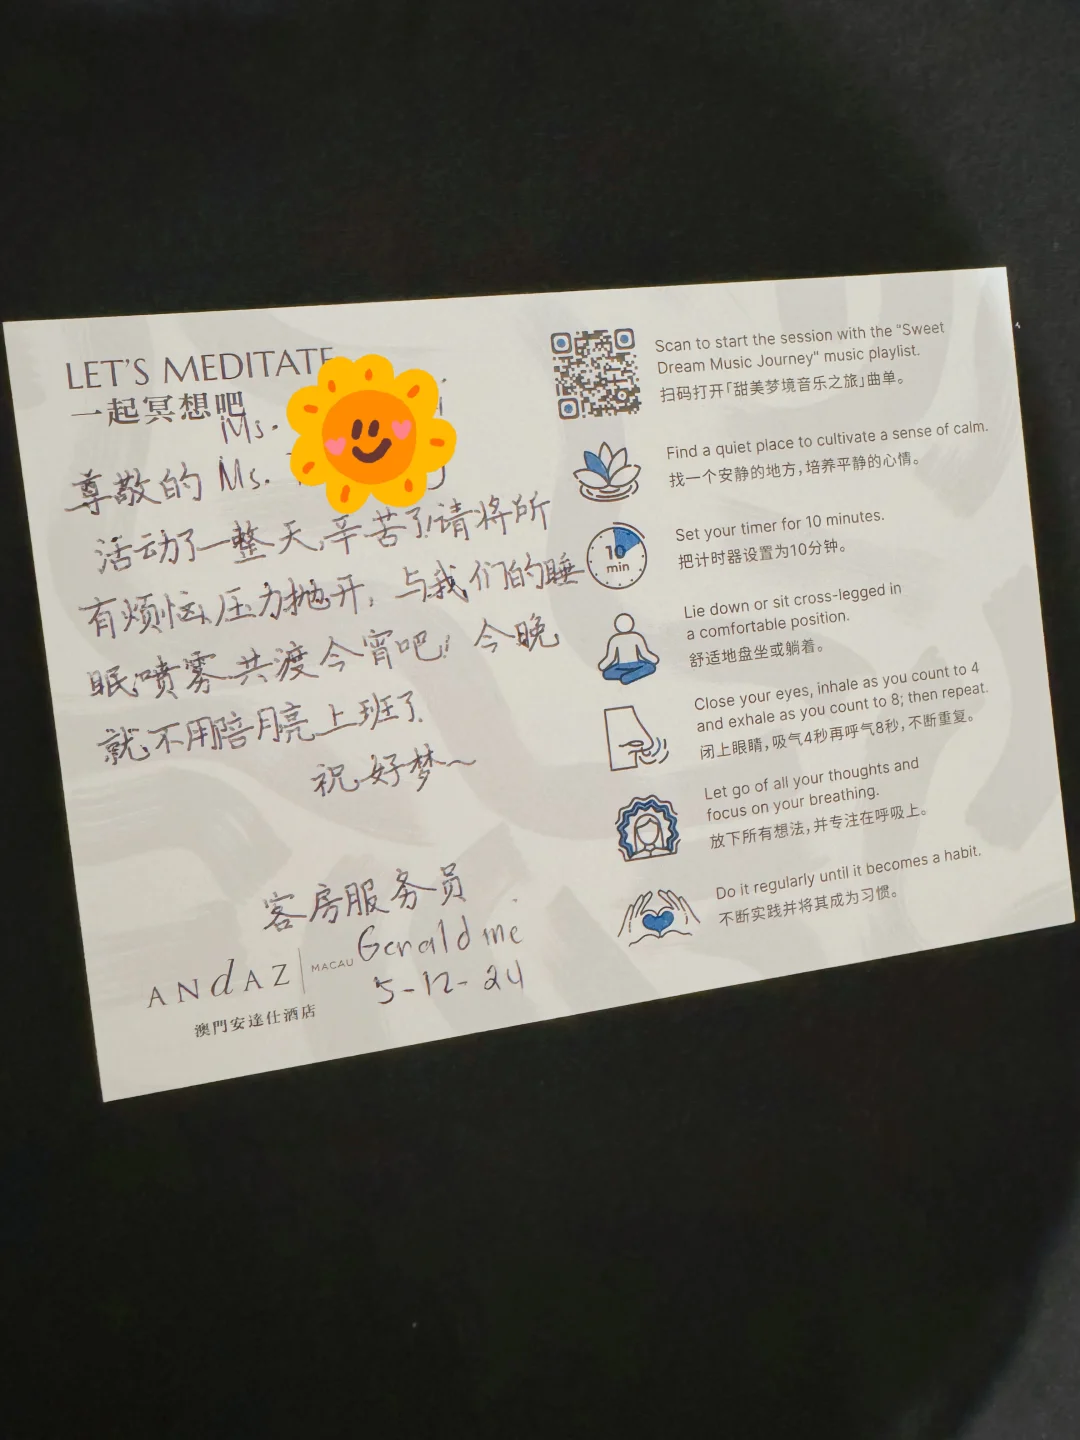 LET'S MEDITATE
一起冥想吧
Ms.
尊敬的 Ms.
活动了一整天,辛苦了!请将所
有烦恼、压力抛开,与我们的睡
眠喷雾共渡今宵吧! 今晚
就不用陪月亮上班了.
祝好梦~
客房服务员
Geraldine
5-12-24
ANdAZ | MACAU
澳門安達仕酒店
Scan to start the session with the "Sweet
Dream Music Journey" music playlist.
扫码打开「甜美梦境音乐之旅」曲单。
Find a quiet place to cultivate a sense of calm.
找一个安静的地方,培养平静的心情。
10
min
Set your timer for 10 minutes.
把计时器设置为10分钟。
Lie down or sit cross-legged in
a comfortable position.
舒适地盘坐或躺着。
Close your eyes, inhale as you count to 4
and exhale as you count to 8; then repeat.
闭上眼睛,吸气4秒再呼气8秒,不断重复。
Let go of all your thoughts and
focus on your breathing.
放下所有想法,并专注在呼吸上。
Do it regularly until it becomes a habit.
不断实践并将其成为习惯。